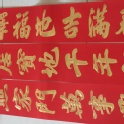 福地吉滿
寶地千年
門萬事